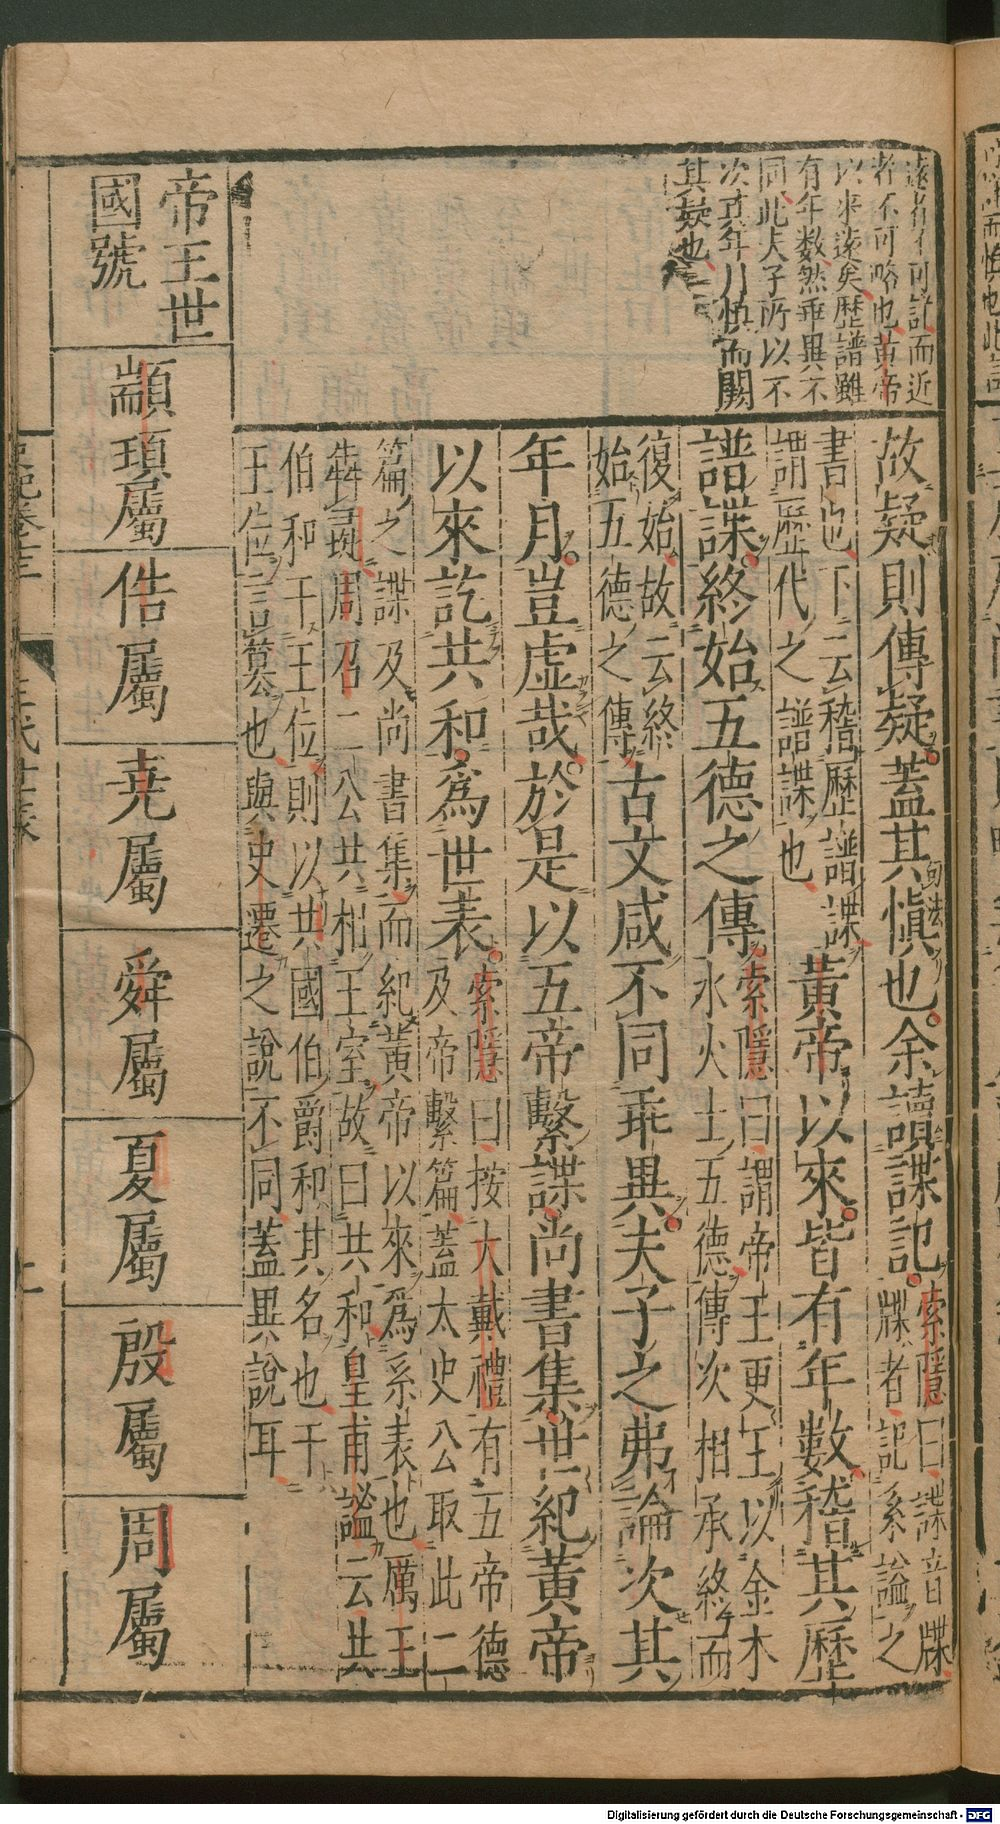 遠者不可詳而近
者不可略也黄帝
以来遠矣歷譜雖
有年数然乖異不
同此夫子所以不
次其年月慎而闕
其疑也
故疑則傳疑蓋其慎也余讀諜記索隱曰諜音牒
牒者記系謚之
書也下云稽歷譜諜
謂歷代之譜諜也黃帝以來皆有年數稽其歷
譜諜終始五德之傳索隱曰謂帝王更王以金木
水火土五德傳次相承終而
復始故云終
始五德之傳古文咸不同乖異夫子之弗論次其
年月豈虚哉於是以五帝繫諜尚書集世紀黃帝
以來訖共和爲世表索隱曰按大戴禮有五帝德
及帝繫篇蓋太史公取此二
篇之諜及尚書集而紀黃帝以來爲系表也厲王
犇彘周召二公共相王室故曰共和皇甫謐云共
伯和干王位則以共國伯爵和其名也干
王位言篡也與史遷之說不同蓋異說耳
帝王世
國號
顓頊屬
俈屬
尭屬
舜屬
夏屬
殷屬
周屬
史記卷十三
三代世表
Digitalisierung gefördert durch die Deutsche Forschungsgemeinschaft - DFG